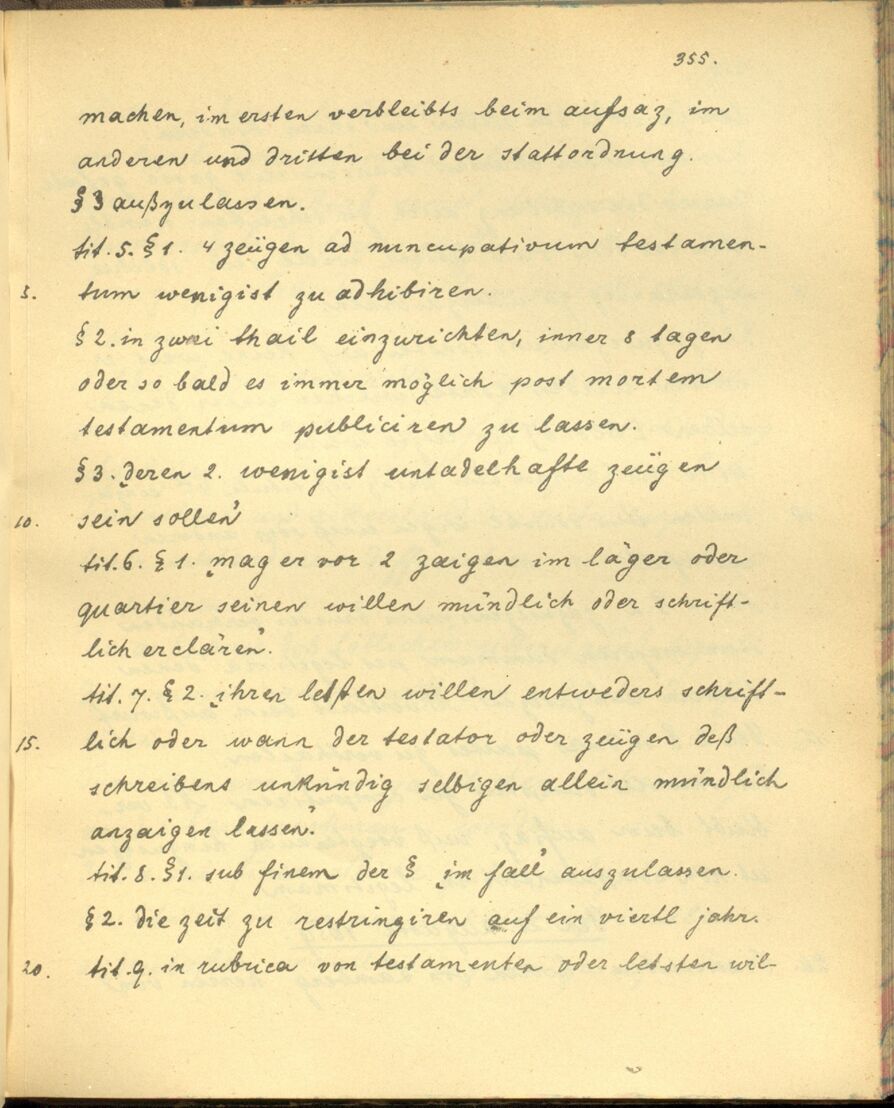 355.
machen, im ersten verbleibts beim aufsaz, im
anderen und dritten bei der stattordnung.
§ 3 außzulassen.
tit. 5. § 1. 4 zeügen ad nuncupativum testamen-
5. tum wenigist zu adhibiren.
§ 2. in zwei thail einzurichten, inner 8 tagen
oder so bald es immer möglich post mortem
testamentum publiciren zu lassen.
§ 3. „deren 2. wenigist untadelhafte zeügen
10. sein sollen“
tit. 6. § 1. „mag er vor 2 zaigen im läger oder
quartier seinen willen mündlich oder schrift-
lich erclären“.
tit. 7. § 2. „ihren letsten willen entweders schrift-
15. lich oder wann der testator oder zeügen deß
schreibens unkündig selbigen allein mündlich
anzaigen lassen“.
tit. 8. § 1. sub finem der § „im fall“ auszulassen.
§ 2. die zeit zu restringiren auf ein viertl jahr.
20. tit. 9. in rubrica von testamenten oder letsten wil-